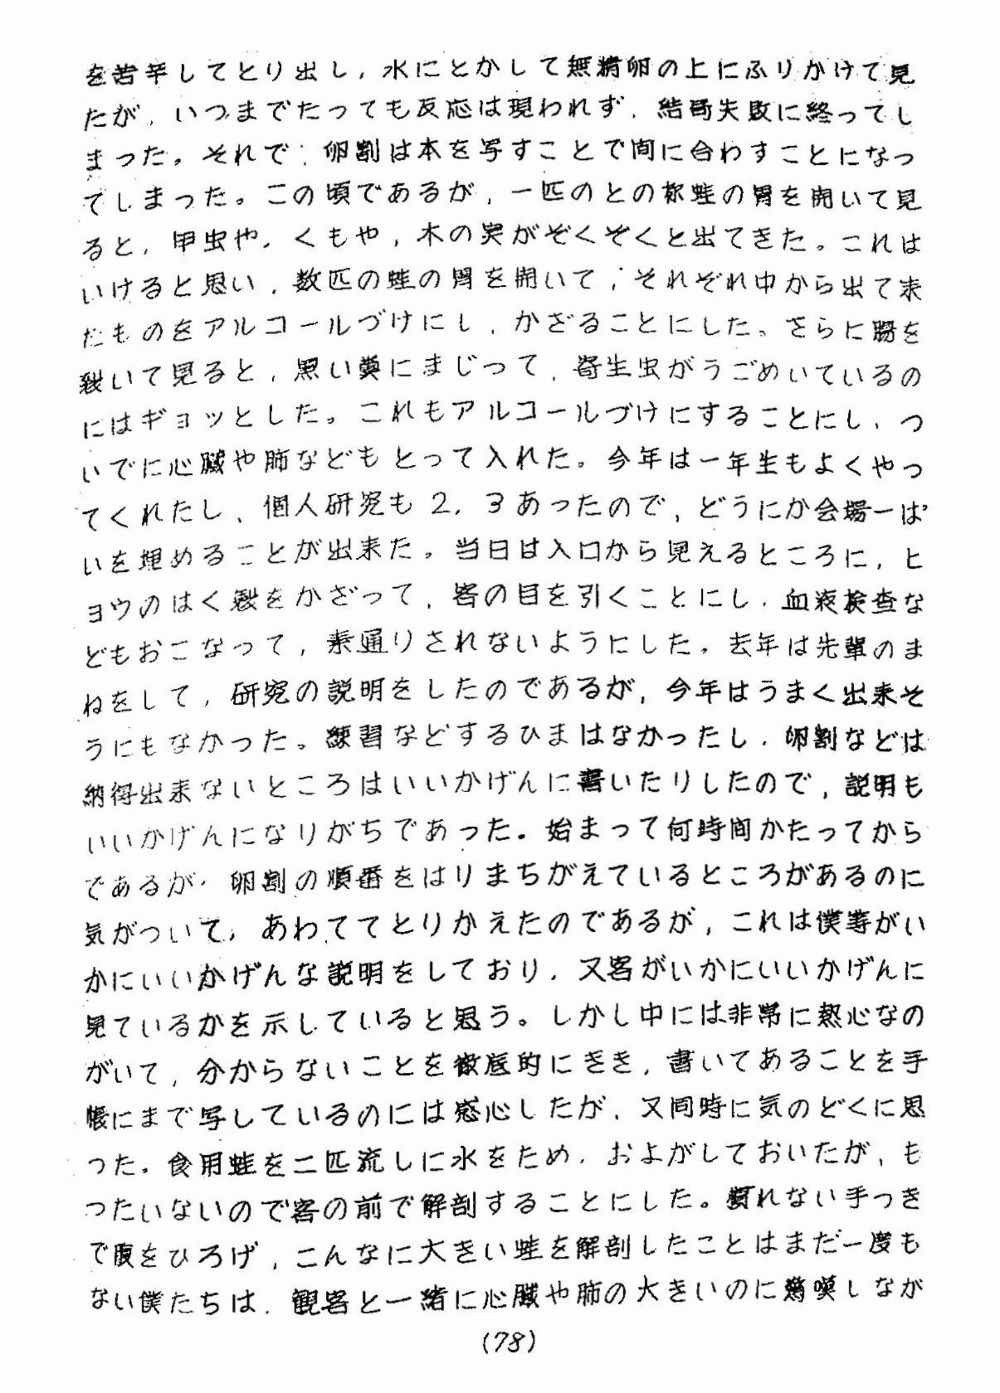 を苦辛してとり出し,水にとかして無精卵の上にふりかけて見
たが,いつまでたっても反応は現われず,結局失敗に終ってし
まった。それで,卵割は本を写すことで間に合わすことになっ
てしまった。この頃であるが,一匹のとの様蛙の胃を開いて見
ると,甲虫や,くもや,木の実がぞくぞくと出てきた。これは
いけると思い,数匹の蛙の胃を開いて,それぞれ中から出て来
たものをアルコールづけにし,かざることにした。さらに腸を
裂いて見ると,黒い糞にまじって,寄生虫がうごめいているの
にはギョッとした。これもアルコールづけにすることにし,つ
いでに心臓や肺などもとって入れた。今年は一年生もよくやっ
てくれたし,個人研究も2,3あったので,どうにか会場一ぱ
いを埋めることが出来た。当日は入口から見えるところに,ヒ
ョウのはく製をかざって,客の目を引くことにし,血液検査な
どもおこなって,素通りされないようにした。去年は先輩のま
ねをして,研究の説明をしたのであるが,今年はうまく出来そ
うにもなかった。練習などするひまはなかったし,卵割などは
納得出来ないところはいいかげんに書いたりしたので,説明も
いいかげんになりがちであった。始まって何時間かたってから
であるが,卵割の順番をはりまちがえているところがあるのに
気がついて,あわててとりかえたのであるが,これは僕等がい
かにいいかげんな説明をしており,又客がいかにいいかげんに
見ているかを示していると思う。しかし中には非常に熱心なの
がいて,分からないことを徹底的にきき,書いてあることを手
帳にまで写しているのには感心したが,又同時に気のどくに思
った。食用蛙を二匹流しに水をため,およがしておいたが,も
ったいないので客の前で解剖することにした。慣れない手つき
で腹をひろげ,こんなに大きい蛙を解剖したことはまだ一度も
ない僕たちは,観客と一緒に心臓や肺の大きいのに驚嘆しなが
(78)